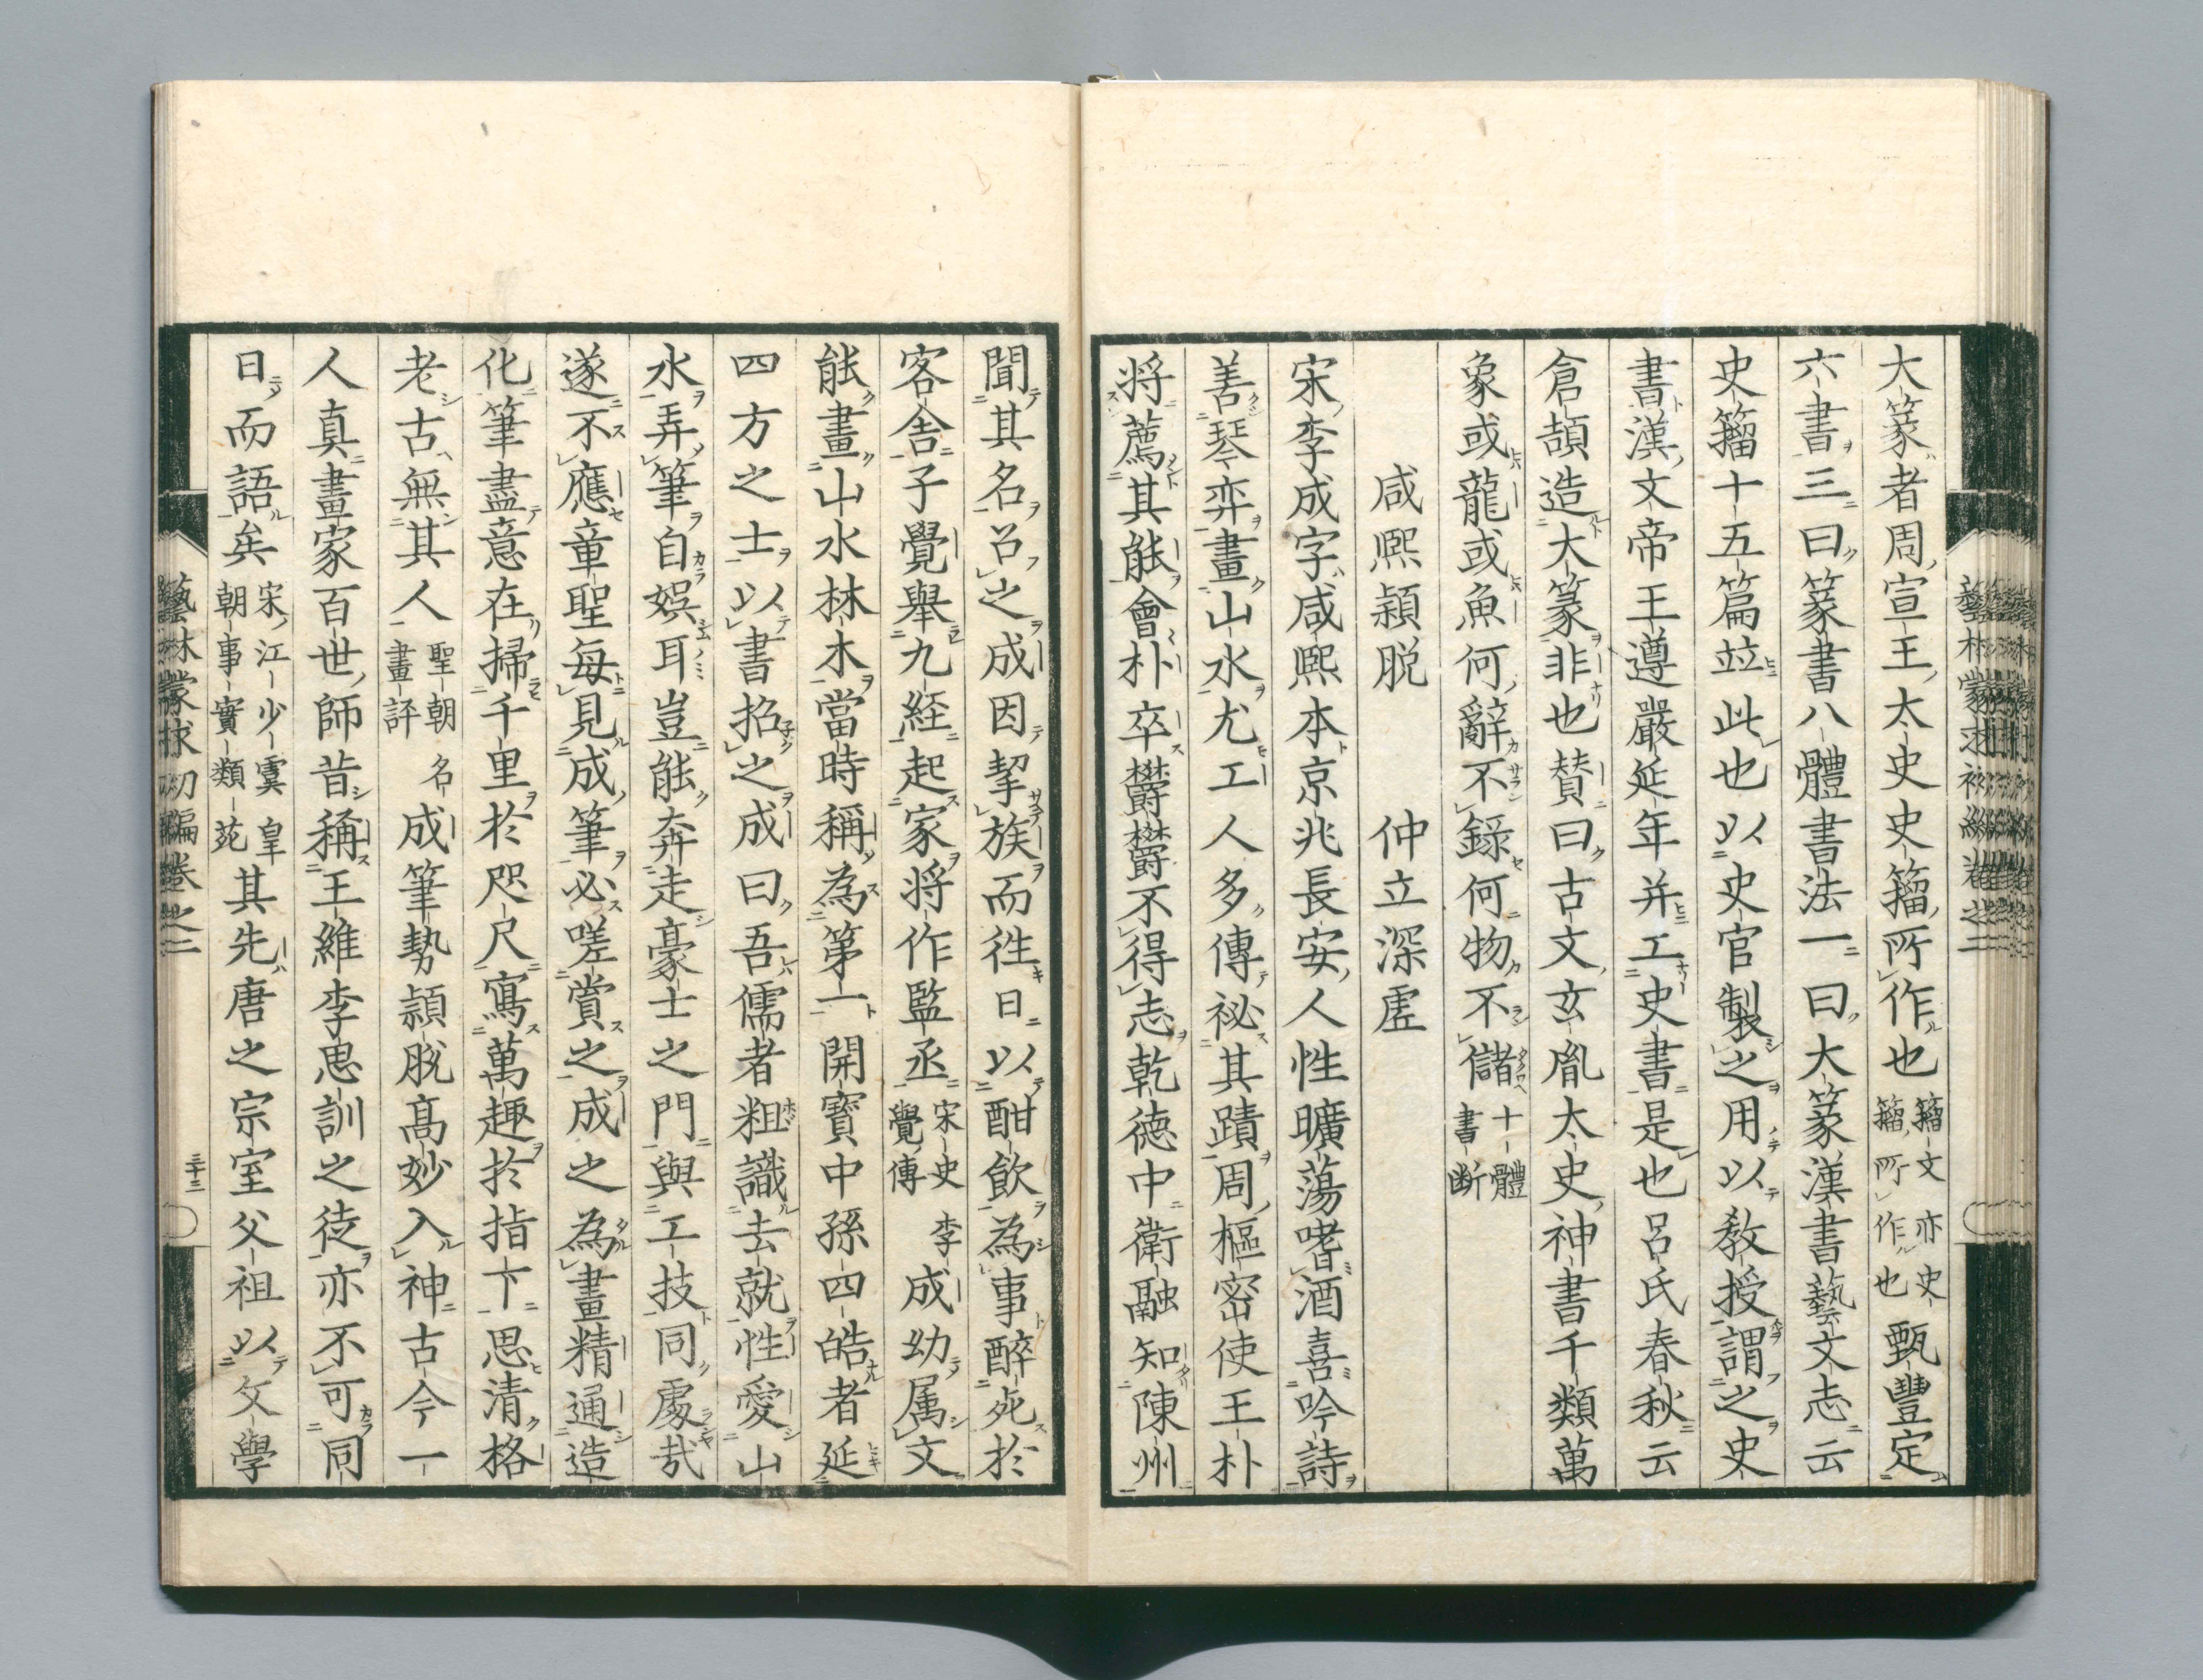 大篆者周宣王太史史籀所作也籀文亦史籀所作也甄豐定
六書三曰篆書八體書法一曰大篆漢書藝文志云
史籀十五篇竝此也以史官製之用以敎授謂之史
書漢文帝王遵嚴延年并工史書是也呂氏春秋云
倉頡造大篆非也賛曰古文玄胤太史神書千類萬
象或龍或魚何辭不錄何物不儲十體書断
咸熈穎脱　仲立深虗
宋李成字咸熈本京兆長安人性曠蕩嗜酒喜吟詩
善琴弈畫山水尤工人多傳祕其蹟周樞密使王朴
将薦其能會朴卒欝欝不得志乾德中衛融知陳州
聞其名召之成因挈族而徃日以酣飲為事醉死於
客舎子覺舉九經起家将作監丞宋史覺傳李成幼属文
能畫山水林木當時稱為第一開寶中孫四皓者延
四方之士以書招之成曰吾儒者粗識去就性愛山
水弄筆自娯耳豈能奔走豪士之門與工技同處哉
遂不應童聖每見成筆必嗟賞之成之為畫精通造
化筆盡意在掃千里於咫尺寫萬趣於指下思清格
老古無其人聖朝名畫評成筆勢頴脱髙妙入神古今一
人真畫家百世師昔稱王維李思訓之徒亦不可同
日而語矣宋江少虞皇朝事實類苑其先唐之宗室父祖以文學
藝林蒙求初編卷之二
三十三